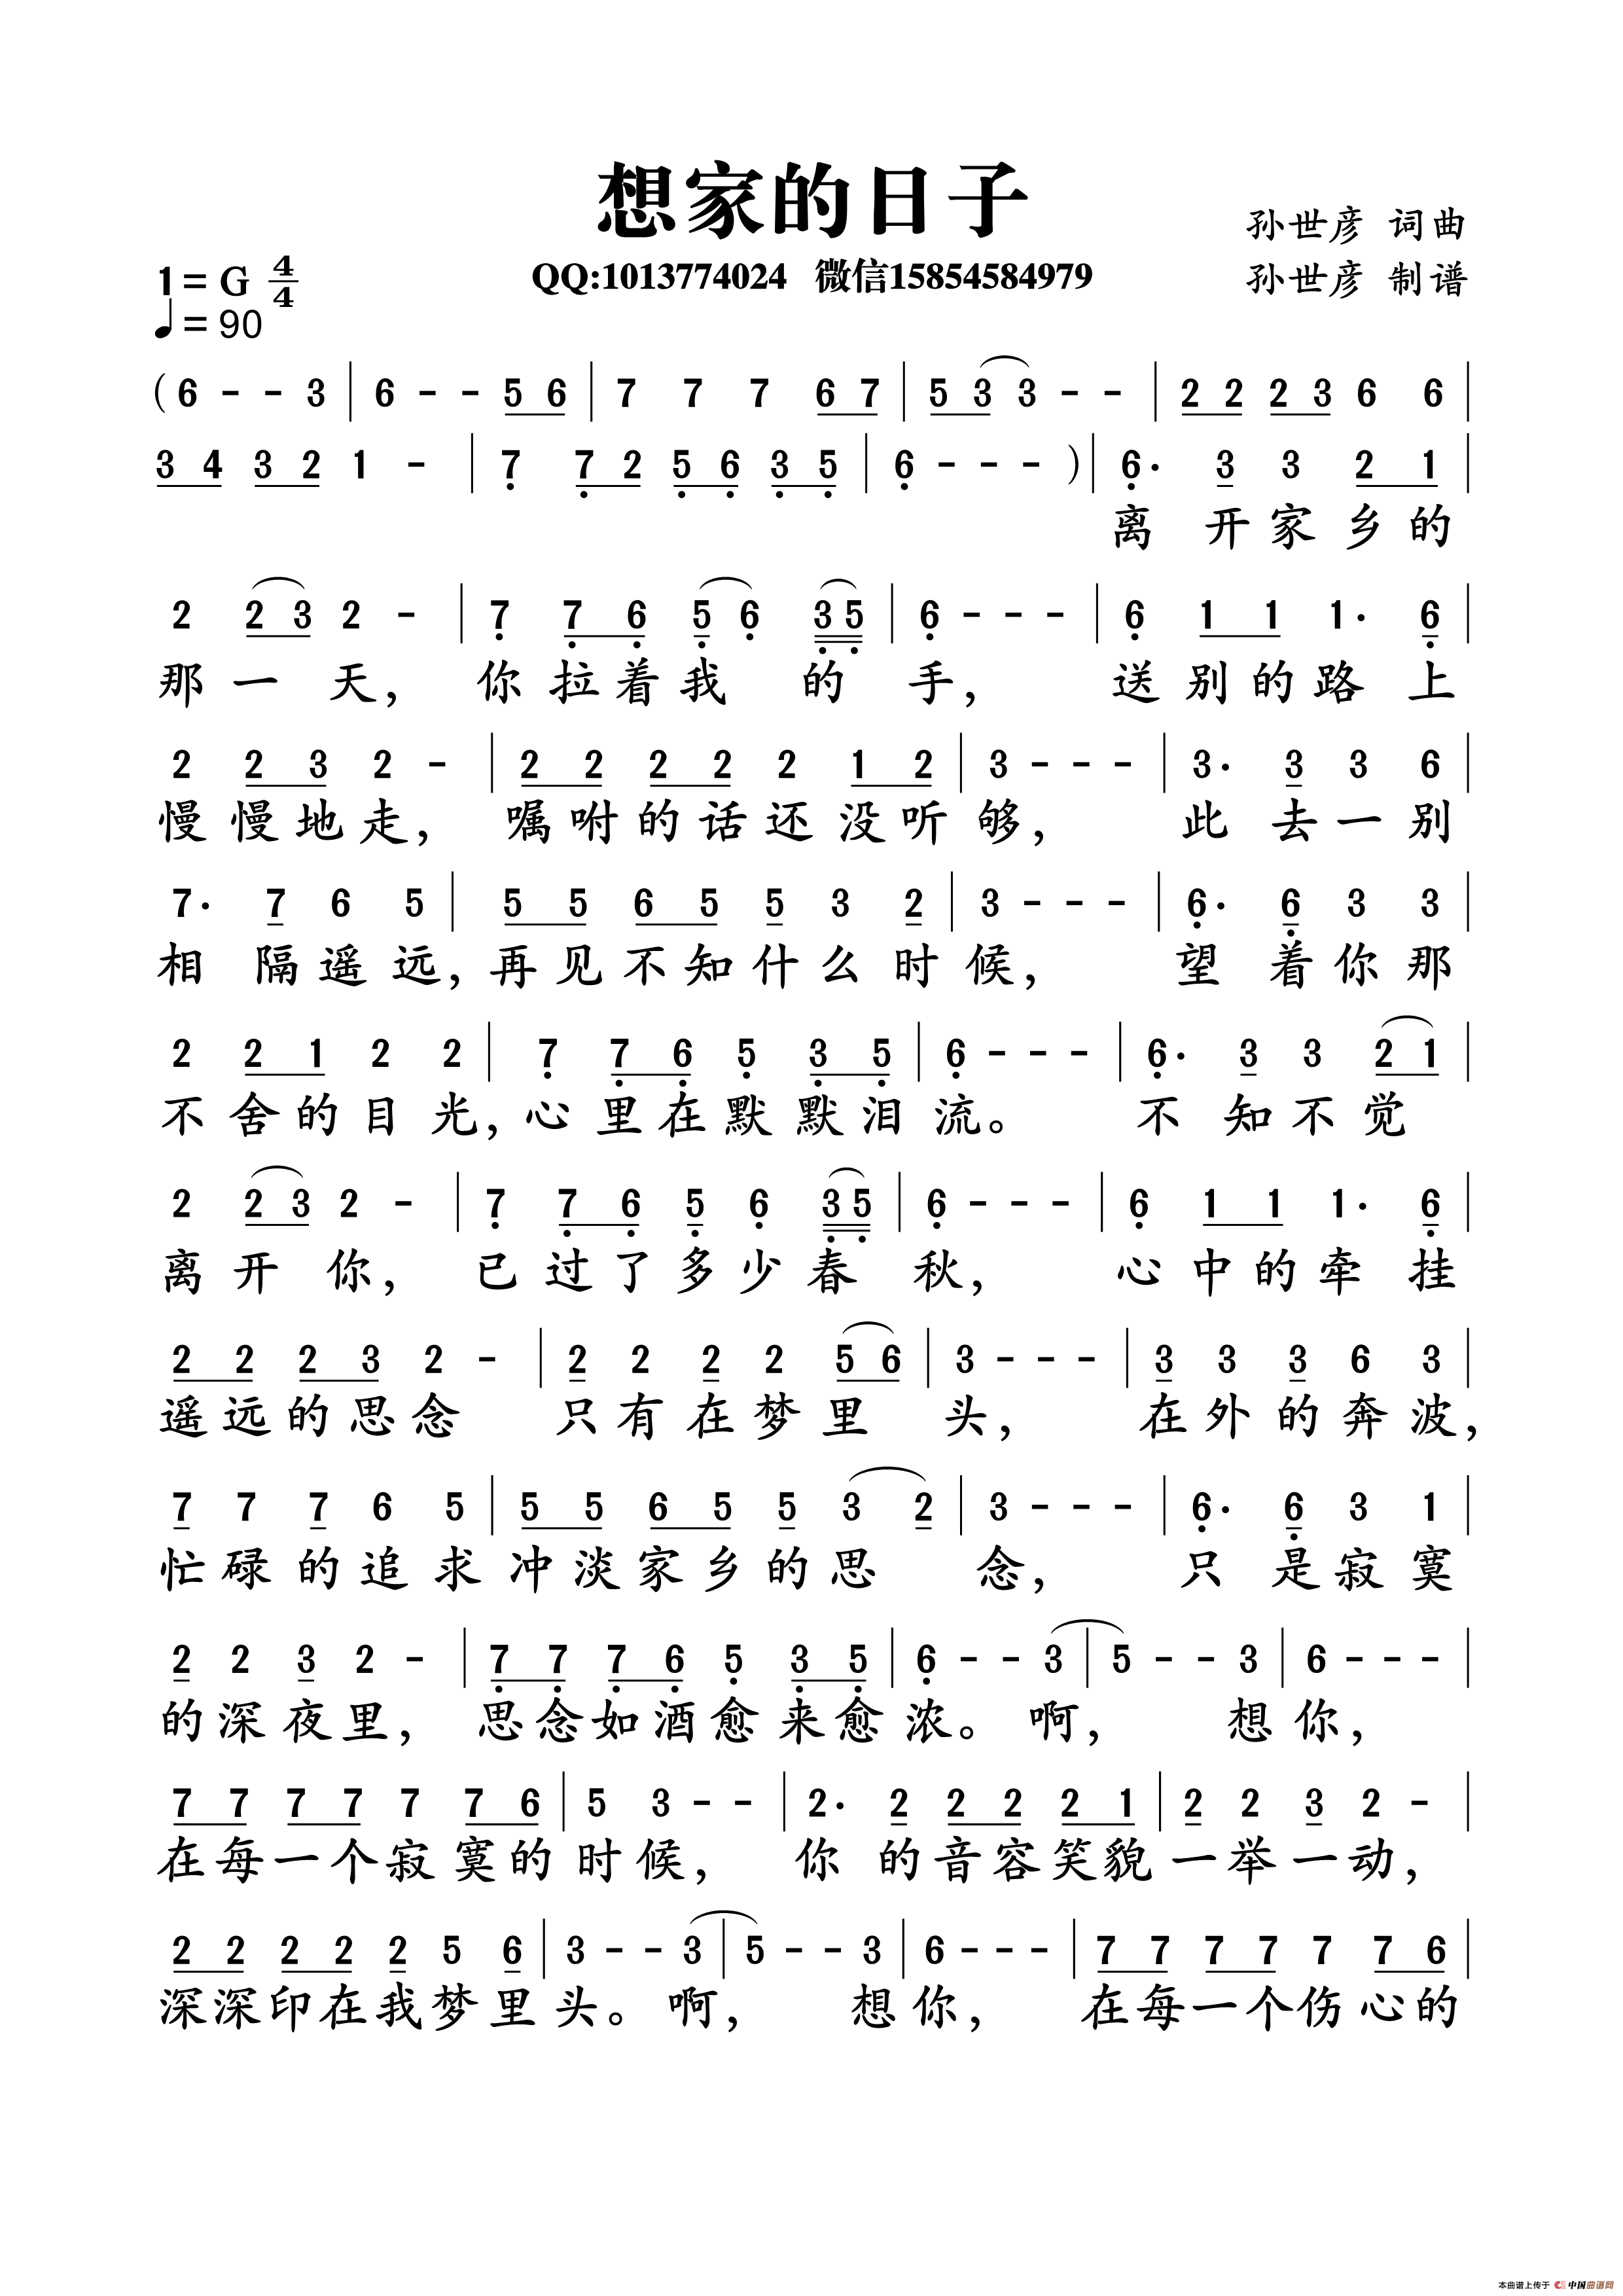 想家的日子
孙世彦 词曲
1= G 4/4
QQ:1013774024 微信15854584979
孙世彦 制谱
♩= 90
( 6 - - 3 | 6 - - 5 6 | 7 7 7 6 7 | 5 3 3 - - | 2 2 2 3 6 6 |
3 4 3 2 1 - | 7 7 2 5 6 3 5 | 6 - - - ) | 6. 3 3 2 1 |
离 开 家 乡 的
2 2 3 2 - | 7 7 6 5 6 3 5 | 6 - - - | 6 1 1 1. 6 |
那 一 天, 你 拉 着 我 的 手, 送 别 的 路 上
2 2 3 2 - | 2 2 2 2 2 1 2 | 3 - - - | 3. 3 3 6 |
慢 慢 地 走, 嘱 咐 的 话 还 没 听 够, 此 去 一 别
7. 7 6 5 | 5 5 6 5 5 3 2 | 3 - - - | 6. 6 3 3 |
相 隔 遥 远, 再 见 不 知 什 么 时 候, 望 着 你 那
2 2 1 2 2 | 7 7 6 5 3 5 | 6 - - - | 6. 3 3 2 1 |
不 舍 的 目 光, 心 里 在 默 默 泪 流。 不 知 不 觉
2 2 3 2 - | 7 7 6 5 6 3 5 | 6 - - - | 6 1 1 1. 6 |
离 开 你, 已 过 了 多 少 春 秋, 心 中 的 牵 挂
2 2 2 3 2 - | 2 2 2 2 5 6 | 3 - - - | 3 3 3 6 3 |
遥 远 的 思 念 只 有 在 梦 里 头, 在 外 的 奔 波,
7 7 7 6 5 | 5 5 6 5 5 3 2 | 3 - - - | 6. 6 3 1 |
忙 碌 的 追 求 冲 淡 家 乡 的 思 念, 只 是 寂 寞
2 2 3 2 - | 7 7 7 6 5 3 5 | 6 - - 3 | 5 - - 3 | 6 - - - |
的 深 夜 里, 思 念 如 酒 愈 来 愈 浓。 啊, 想 你,
7 7 7 7 7 7 6 | 5 3 - - | 2. 2 2 2 2 1 | 2 2 3 2 - |
在 每 一 个 寂 寞 的 时 候, 你 的 音 容 笑 貌 一 举 一 动,
2 2 2 2 2 5 6 | 3 - - 3 | 5 - - 3 | 6 - - - | 7 7 7 7 7 7 6 |
深 深 印 在 我 梦 里 头。 啊, 想 你, 在 每 一 个 伤 心 的
本曲谱上传于 中国曲谱网